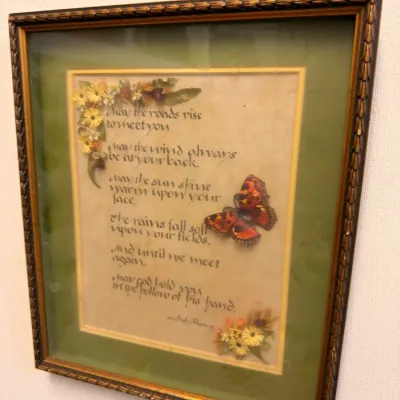 May the roads rise
to meet you
May the wind always
be at your back.
May the sun shine
warm upon your
face.
The rains fall soft
upon your fields.
And until we meet
again.
May God hold you
in the hollow of his hand.